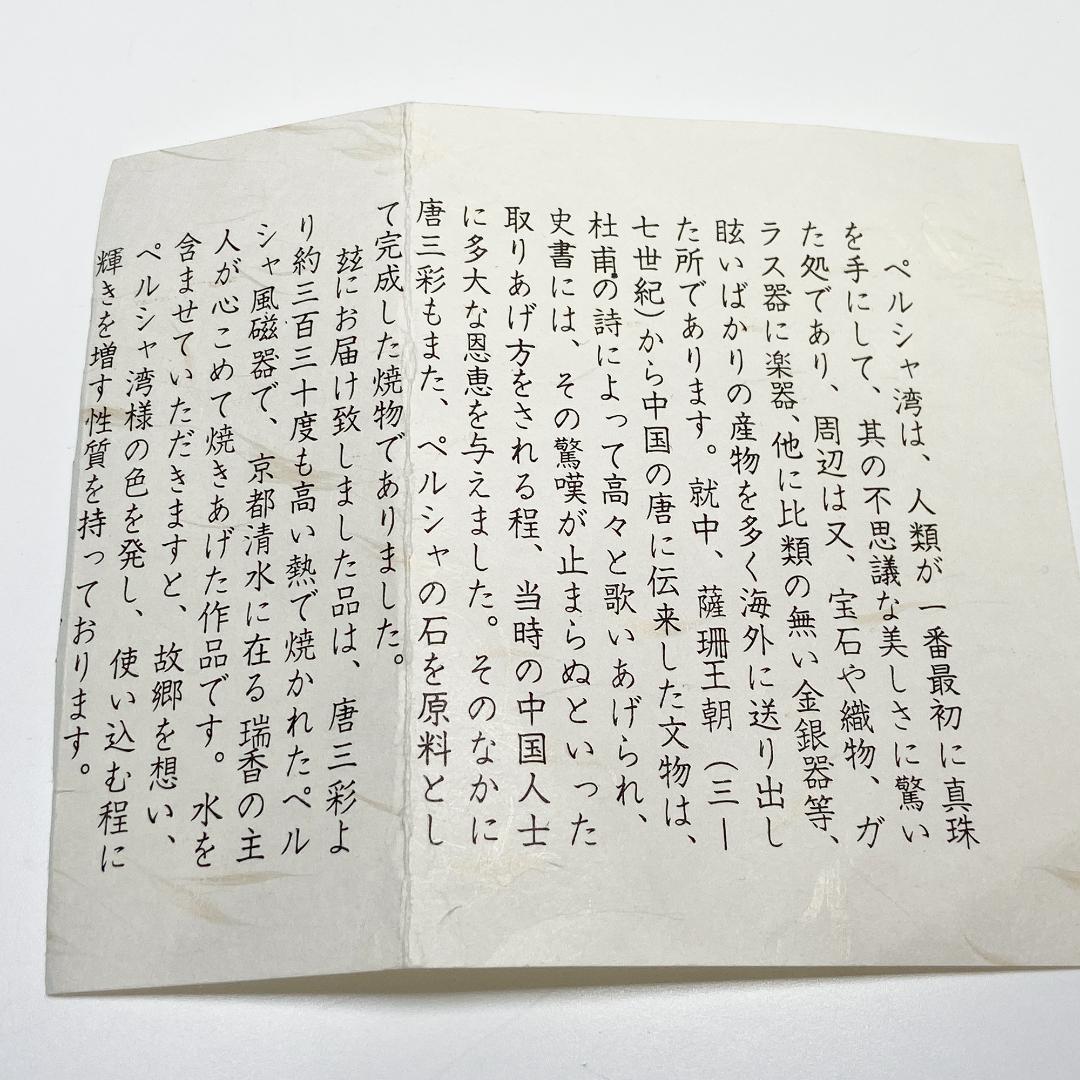 ペルシャ湾は、人類が一番最初に真珠
を手にして、其の不思議な美しさに驚い
た処であり、周辺は又、宝石や織物、ガ
ラス器に楽器、他に比類の無い金銀器等、
眩いばかりの産物を多く海外に送り出し
た所であります。就中、薩珊王朝（三ー
七世紀）から中国の唐に伝来した文物は、
杜甫の詩によって高々と歌いあげられ、
史書には、その驚嘆が止まらぬといった
取りあげ方をされる程、当時の中国人士
に多大な恩恵を与えました。そのなかに
唐三彩もまた、ペルシャの石を原料とし
て完成した焼物でありました。
玆にお届け致しました品は、唐三彩よ
り約三百三十度も高い熱で焼かれたペル
シャ風磁器で、京都清水に在る瑞香の主
人が心こめて焼きあげた作品です。水を
含ませていただきますと、故郷を想い、
ペルシャ湾様の色を発し、使い込む程に
輝きを増す性質を持っております。